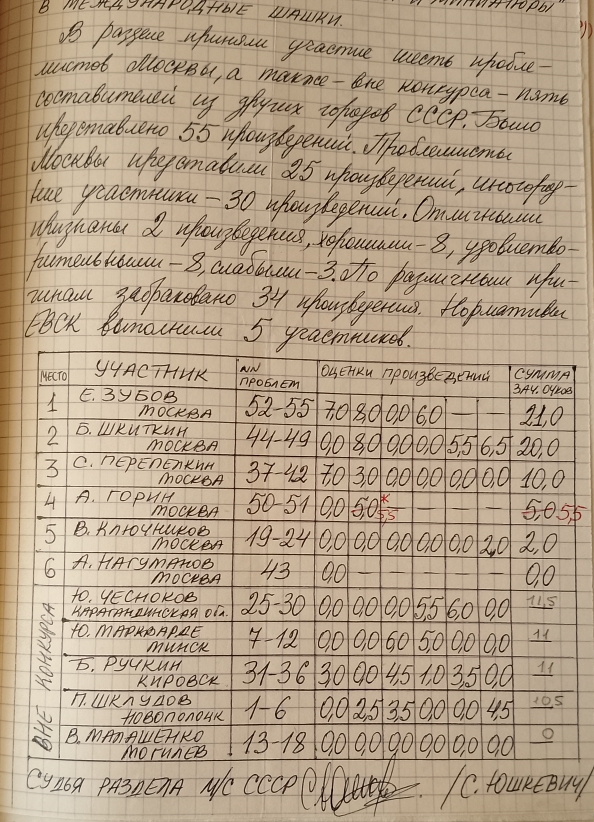 В МЕЖДУНАРОДНЫЕ ШАШКИ. И МИНИАТЮРЫ"
В разделе приняли участие шесть пробле-
мистов Москвы, а также – вне конкурса – пять
составителей из других городов СССР. Было
представлено 55 произведений. Проблемисты
Москвы представили 25 произведений, иногород-
ние участники – 30 произведений. Отличными
признаны 2 произведения, хорошими – 8, удовлетво-
рительными – 8, слабыми – 3. По различным при-
чинам забраковано 34 произведения. Нормативы
ЕВСК выполнили 5 участников.
МЕСТО УЧАСТНИК NN ПРОБЛЕМ ОЦЕНКИ ПРОИЗВЕДЕНИЙ СУММА ЗАЧ. ОЧКОВ
1 Е. ЗУБОВ МОСКВА 52-55 7,0 8,0 0,0 6,0 — — 21,0
2 Б. ШКИТКИН МОСКВА 44-49 0,0 8,0 0,0 0,0 5,5 6,5 20,0
3 С. ПЕРЕПЕЛКИН МОСКВА 37-42 7,0 3,0 0,0 0,0 0,0 0,0 10,0
4 А. ГОРИН МОСКВА 50-51 0,0 5,0* 5,5 — — — — 5,0 5,5
5 В. КЛЮЧНИКОВ МОСКВА 19-24 0,0 0,0 0,0 0,0 0,0 2,0 2,0
6 А. НАГУМАНОВ МОСКВА 43 0,0 — — — — — 0,0
ВНЕ КОНКУРСА
Ю. ЧЕСНОКОВ КАРАГАНДИНСКАЯ ОБЛ. 25-30 0,0 0,0 0,0 5,5 6,0 0,0 11,5
Ю. МАРКВАРДЕ МИНСК 7-12 0,0 0,0 6,0 5,0 0,0 0,0 11
Б. РУЧКИН КИРОВСК 31-36 3,0 0,0 4,5 1,0 3,5 0,0 11
П. ШКЛУДОВ НОВОПОЛОЦК 1-6 0,0 2,5 3,5 0,0 0,0 4,5 10,5
В. МАЛАШЕНКО МОГИЛЕВ 13-18 0,0 0,0 0,0 0,0 0,0 0,0 0
СУДЬЯ РАЗДЕЛА М/С СССР /С. ЮШКЕВИЧ/